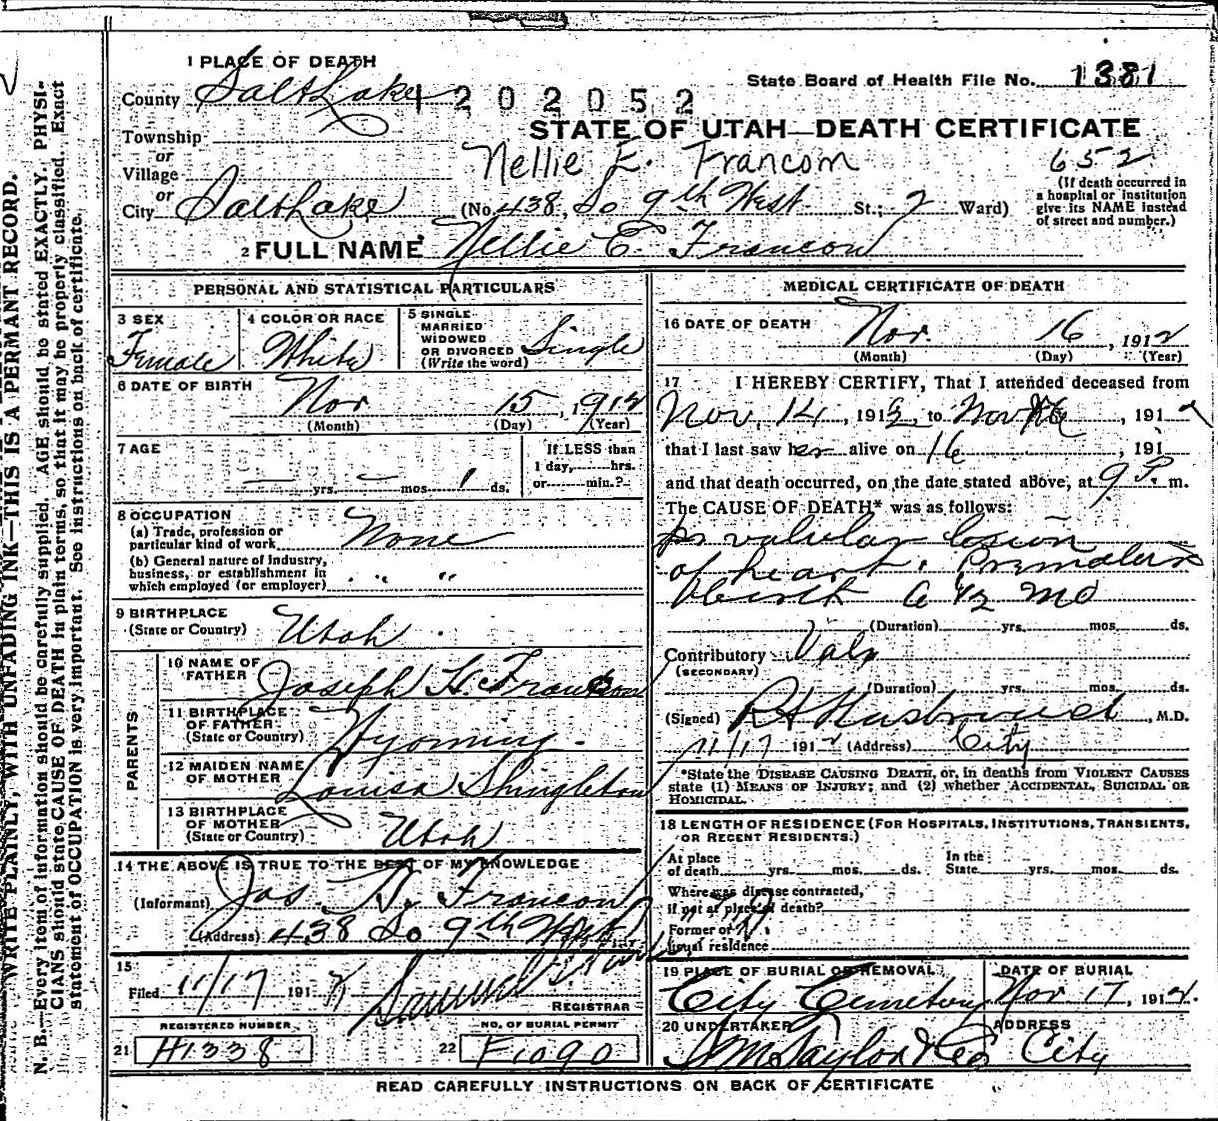 WRITE PLAINLY, WITH UNFADING INK—THIS IS A PERMANT RECORD.
N. B.—Every item of information should be carefully supplied. AGE should be stated EXACTLY. PHYSI-
CIANS should state CAUSE OF DEATH in plain terms, so that it may be properly classified. Exact
statement of OCCUPATION is very important. See instructions on back of certificate.
1 PLACE OF DEATH
State Board of Health File No. 1381
County Salt Lake 1202052
STATE OF UTAH—DEATH CERTIFICATE
Township
or
Village
Nellie E. Francom 652
(If death occurred in
a hospital or institution
give its NAME instead
of street and number.)
or
City Salt Lake (No. 438, So 9th West St.; 2 Ward)
2 FULL NAME Nellie E. Francom
PERSONAL AND STATISTICAL PARTICULARS
3 SEX Female
4 COLOR OR RACE White
5 SINGLE
MARRIED
WIDOWED
OR DIVORCED
(Write the word) Single
6 DATE OF BIRTH
Nov 15, 1912
(Month) (Day) (Year)
7 AGE
— yrs. — mos. 1 ds.
If LESS than
1 day, hrs.
or min.?
8 OCCUPATION
(a) Trade, profession or
particular kind of work None
(b) General nature of industry,
business, or establishment in
which employed (or employer) " "
9 BIRTHPLACE
(State or Country) Utah
PARENTS
10 NAME OF
FATHER Joseph H. Francom
11 BIRTHPLACE
OF FATHER
(State or Country) Wyoming
12 MAIDEN NAME
OF MOTHER Louisa Shingleton
13 BIRTHPLACE
OF MOTHER
(State or Country) Utah
14 THE ABOVE IS TRUE TO THE BEST OF MY KNOWLEDGE
(Informant) Jos. H. Francom
(Address) 438 So 9th West
15
Filed 11/17 1912 REGISTRAR
REGISTERED NUMBER
21 H1338
NO. OF BURIAL PERMIT
22 F1090
MEDICAL CERTIFICATE OF DEATH
16 DATE OF DEATH Nov. 16, 1912
(Month) (Day) (Year)
17 I HEREBY CERTIFY, That I attended deceased from
Nov. 14, 1912, to Nov 16, 191
that I last saw her alive on 16, 191
and that death occurred, on the date stated above, at 9 P. m.
The CAUSE OF DEATH* was as follows:
valvular lesion
of heart. Premature
birth 6 1/2 mo
(Duration) yrs. mos. ds.
Contributory
(SECONDARY)
(Duration) yrs. mos. ds.
(Signed) M.D.
11/17 1912 (Address) City
*State the DISEASE CAUSING DEATH, or, in deaths from VIOLENT CAUSES
state (1) MEANS OF INJURY; and (2) whether ACCIDENTAL, SUICIDAL OR
HOMICIDAL.
18 LENGTH OF RESIDENCE (FOR HOSPITALS, INSTITUTIONS, TRANSIENTS,
OR RECENT RESIDENTS.)
At place
of death yrs. mos. ds. In the
State yrs. mos. ds.
Where was disease contracted,
if not at place of death?
Former or
usual residence
19 PLACE OF BURIAL OR REMOVAL
City Cemetery
DATE OF BURIAL
Nov 17, 1912.
20 UNDERTAKER
S M Taylor & Co
ADDRESS
City
READ CAREFULLY INSTRUCTIONS ON BACK OF CERTIFICATE